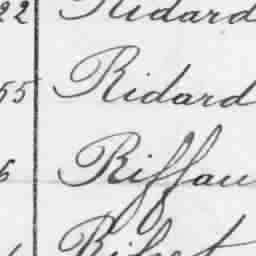 22 Ridard
55 Ridard
Riffau